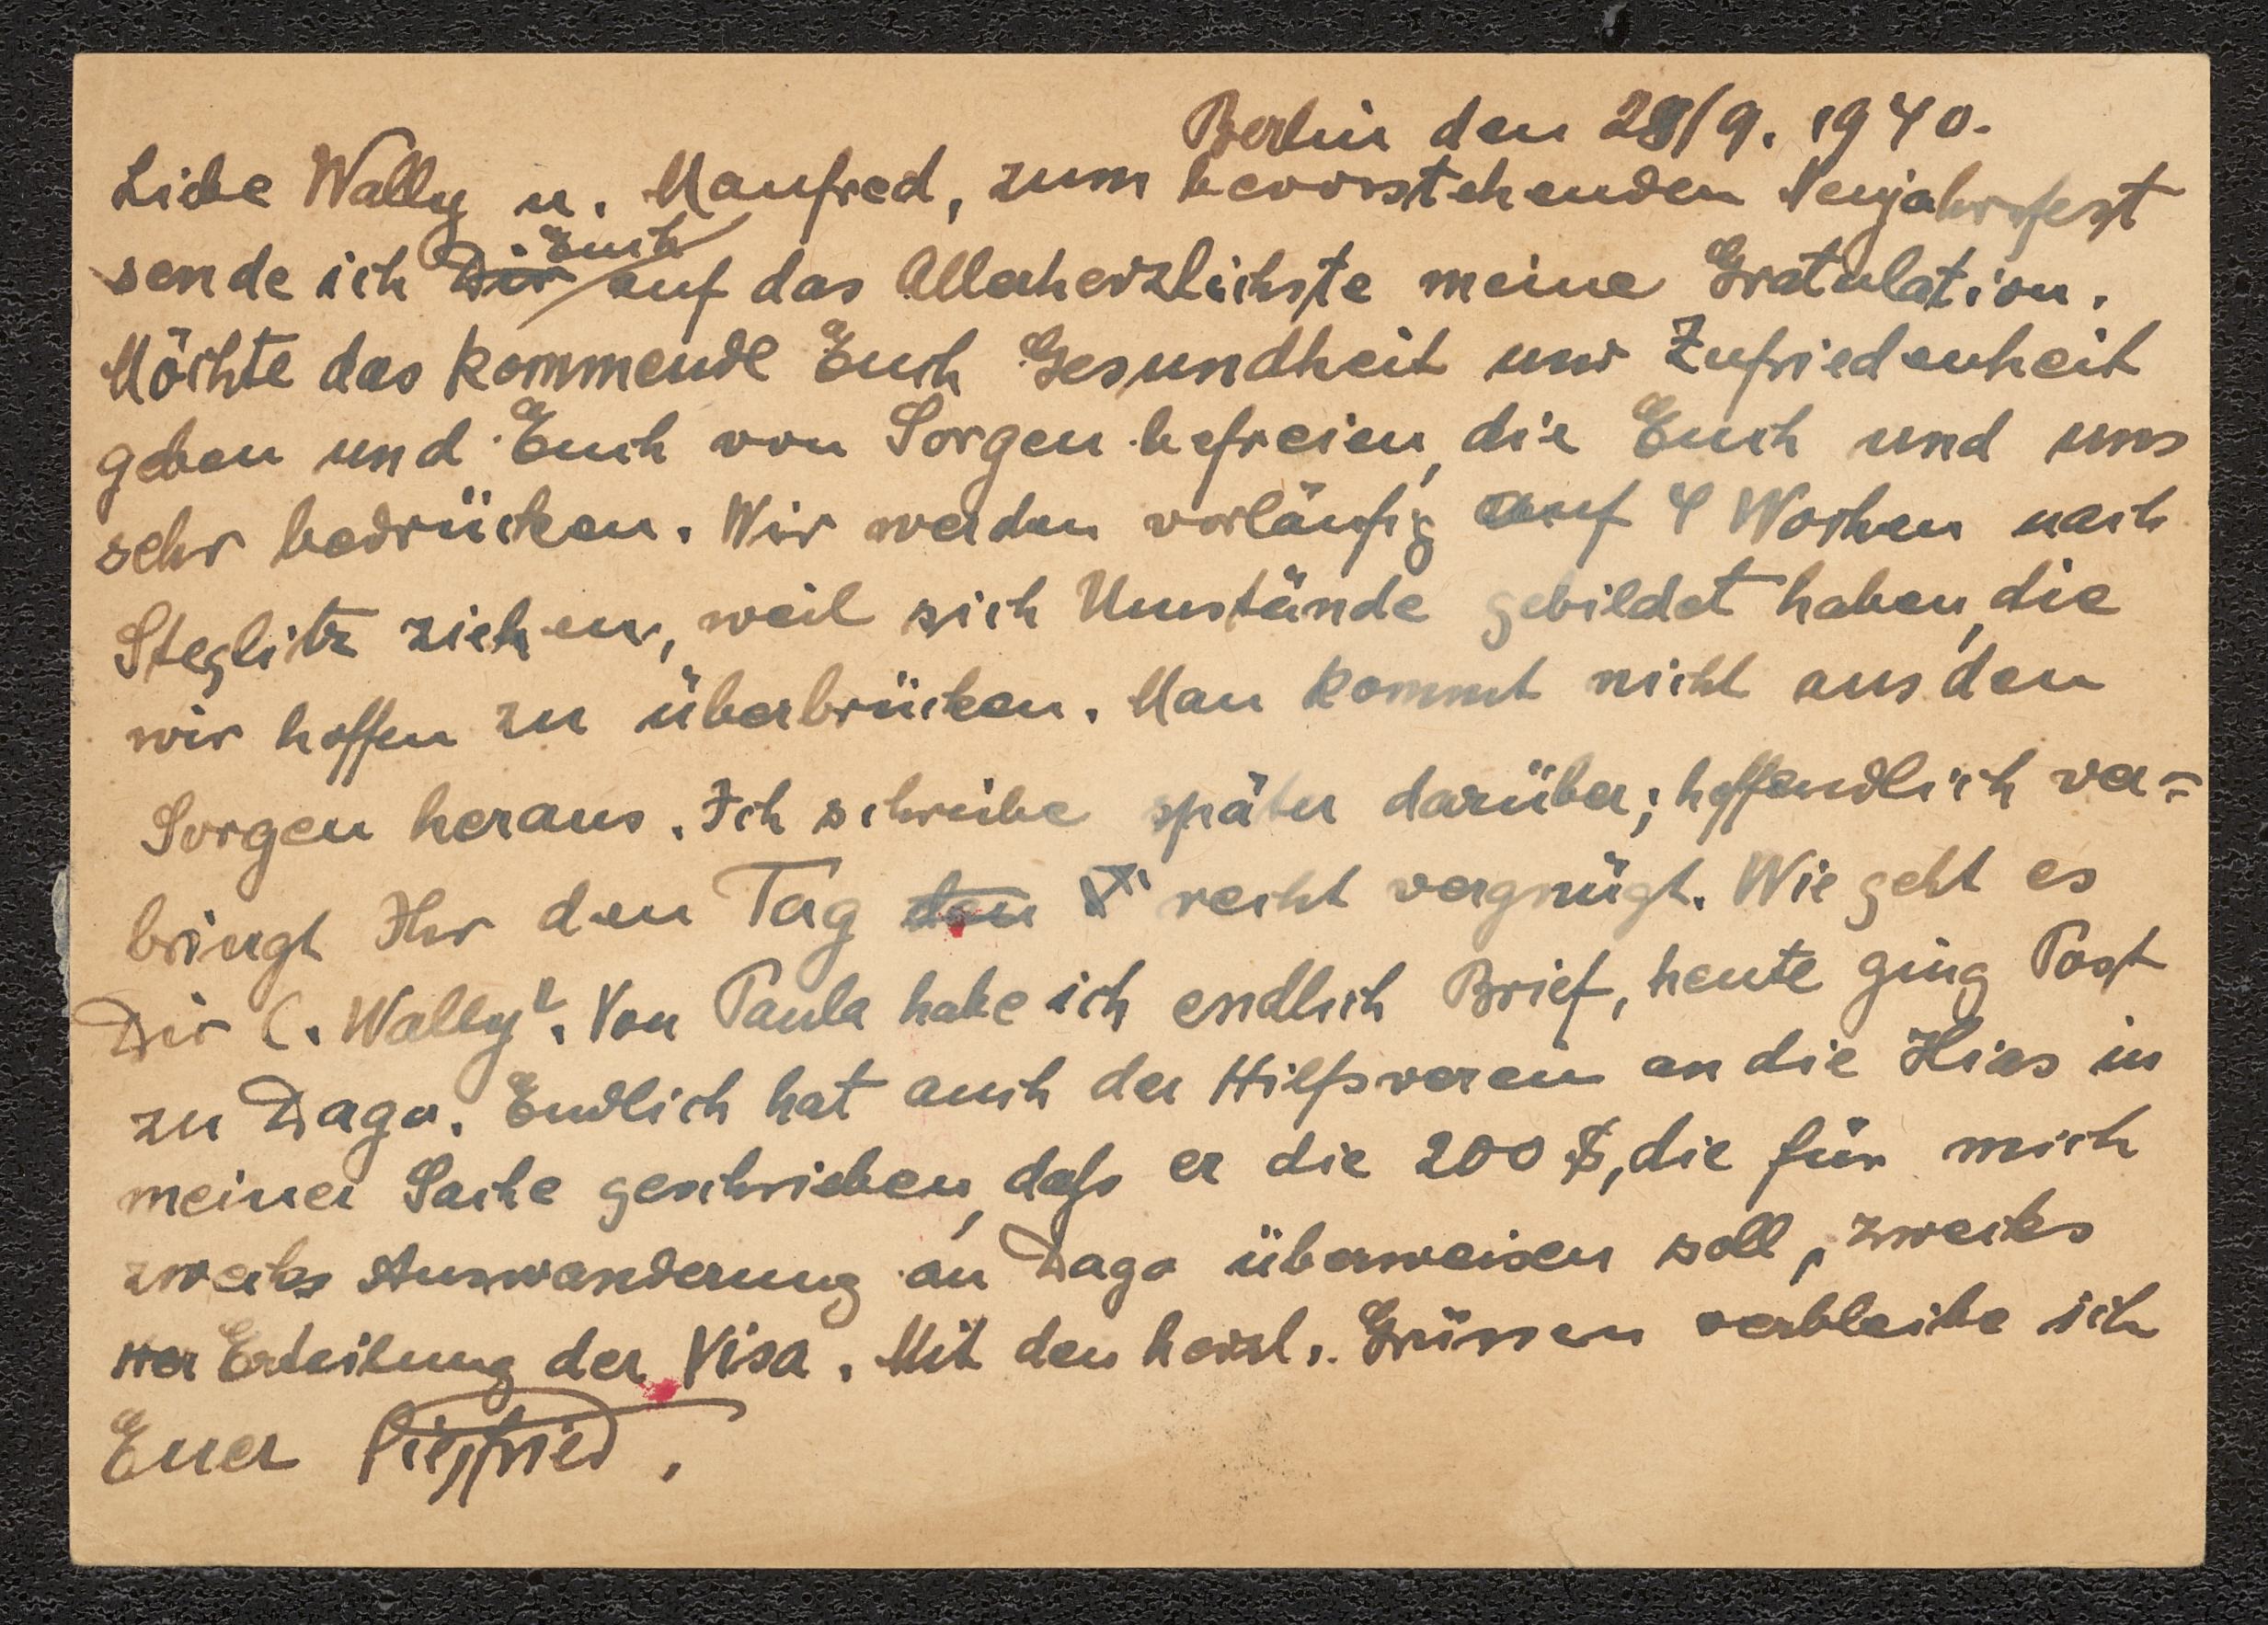 Berlin den 28/9. 1940.
Liebe Wally u. Manfred, zum bevorstehenden Neujahrsfest
sende ich Euch auf das Allerherzlichste meine Gratulation.
Möchte das kommende Euch Gesundheit und Zufriedenheit
geben und Euch von Sorgen befreien, die Euch und uns
sehr bedrücken. Wir werden vorläufig auf 4 Wochen nach
Steglitz ziehen, weil sich Umstände gebildet haben, die
wir hoffen zu überbrücken. Man kommt nicht aus den
Sorgen heraus. Ich schreibe später darüber; hoffendlich ver=
bringt Ihr den Tag recht vergnügt. Wie geht es
Dir l. Wally?. Von Paula habe ich endlich Brief, heute ging Post
zu Dago. Endlich hat auch der Hilfsverein an die Hias in
meiner Sache geschrieben, daß er die 200 $, die für mich
zwecks Auswanderung an Dago überweisen soll, zwecks
der Erteilung der Visa. Mit den herzl. Grüssen verbleibe ich
Euer Siegfried.